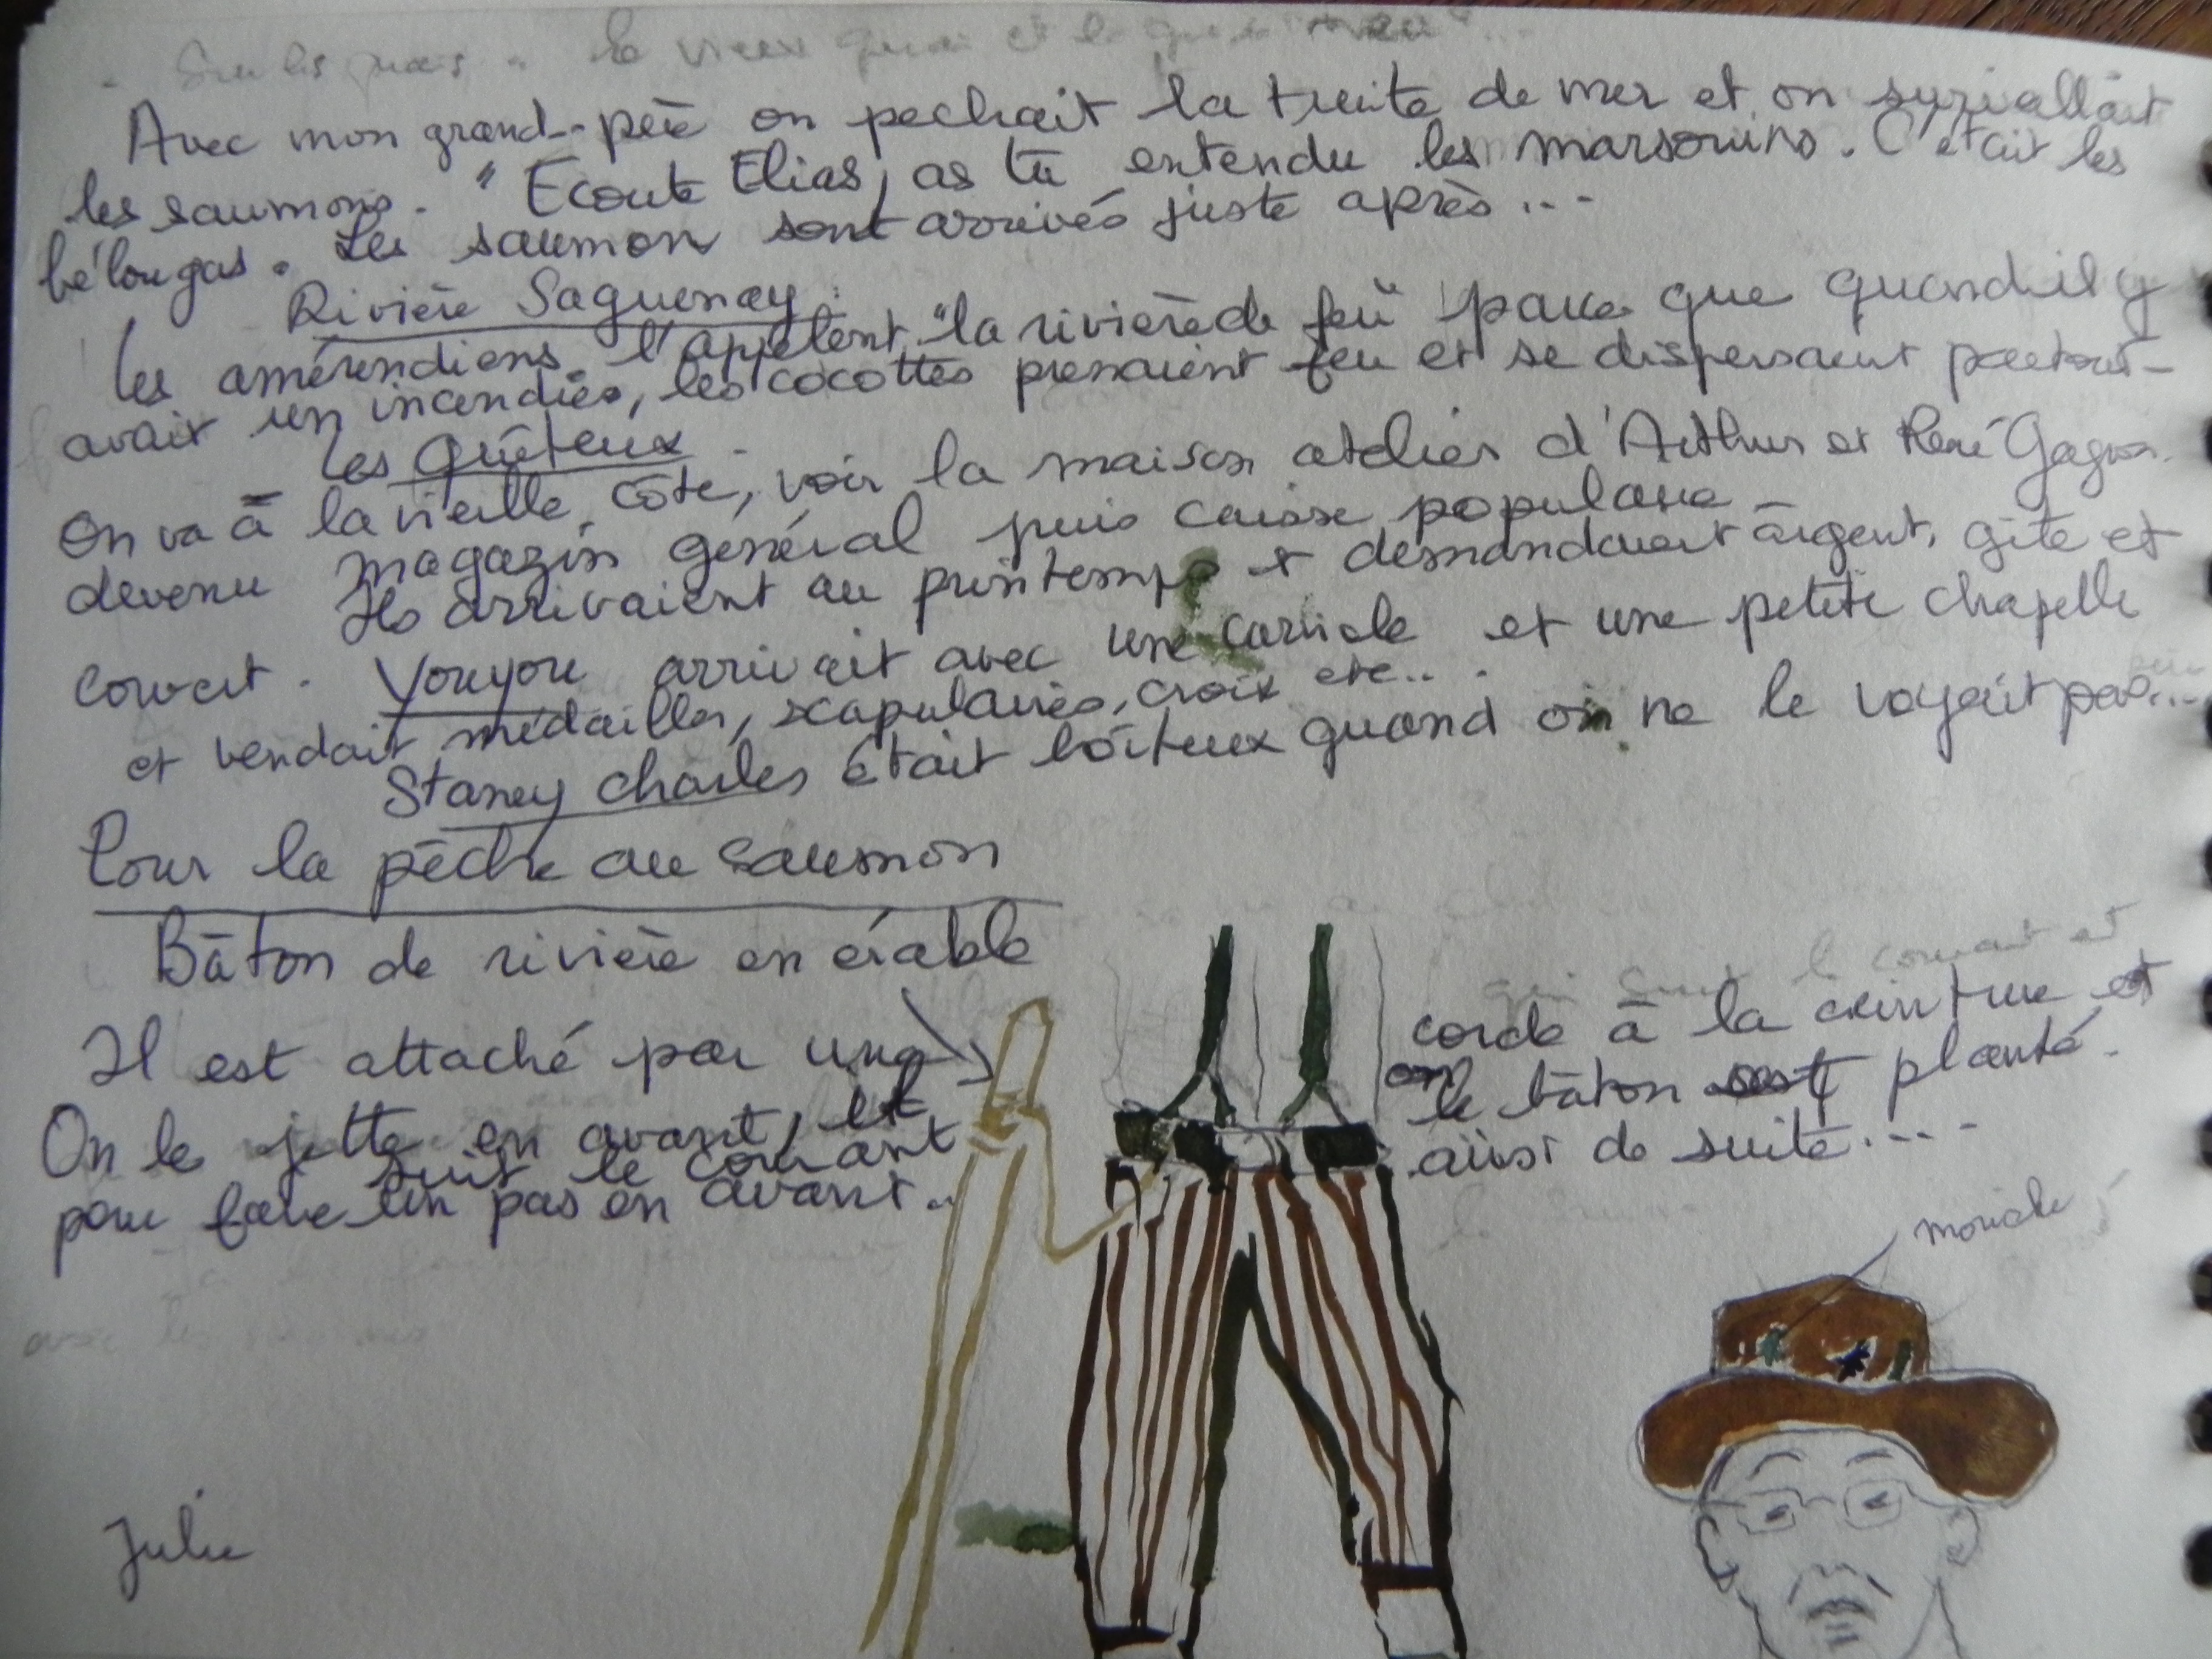 Sur les quais. le vieux quai et le
Avec mon grand-père on pechait la truite de mer et on
les saumons. "Ecoute Elias, as tu entendu les marsouins. C'était les
bélougas. Les saumon sont arrivés juste après...
Rivière Saguenay.
Les amérendiens l'appelent "la rivière de feu" parce que quand il y
avait un incendies, les cocottes prenaient feu et se dispersaient partout-
les Quêteux.
On va à la vieille côte, voir la maison atelier d'Arthur et René Gagnon.
devenu magazin général puis caisse populaire -
Ils arrivaient au printemps et demandaient argent, gîte et
couvert. Youyou arrivait avec une carriole et une petite chapelle
et vendait médailles, scapulaires, croix etc...
Staney Charles était boiteux quand on ne le voyait pas...
Pour la pêche au saumon
Bâton de rivière en érable
Il est attaché par une corde à la ceinture et
On le jette en avant, et le bâton est planté.
suit le courant
pour faire un pas en avant.. ainsi de suite....
mouche
Julie